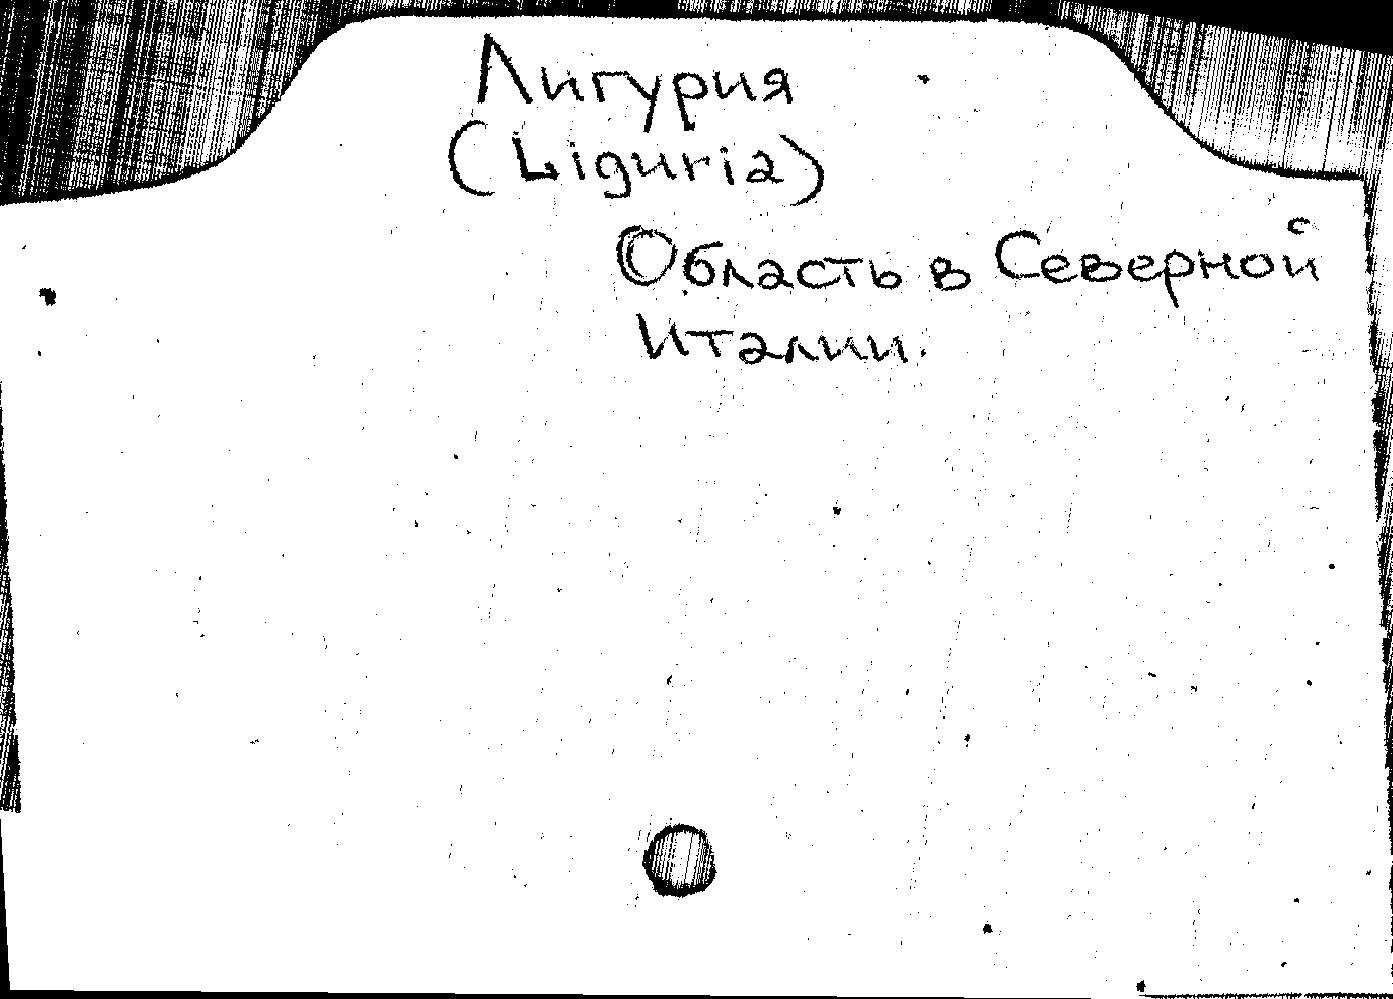 Лигурия
(Liguria)
Область в Северной
Италии.